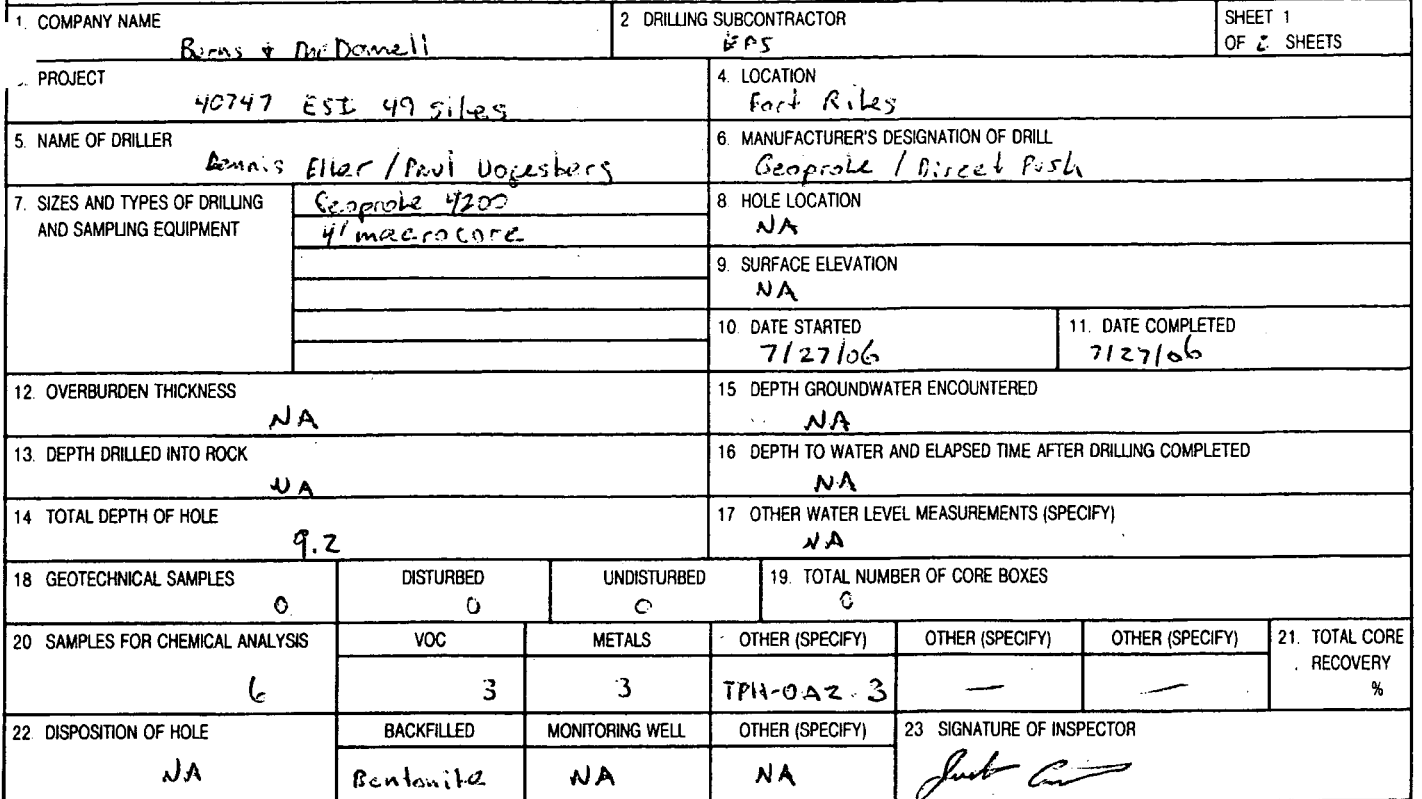 1. COMPANY NAME
Burns & McDonnell
2 DRILLING SUBCONTRACTOR
EPS
SHEET 1
OF 2 SHEETS
PROJECT
40747 ESI 49 Sites
4. LOCATION
Fort Riley
5. NAME OF DRILLER
Dennis Eller / Paul Vogesberg
6. MANUFACTURER'S DESIGNATION OF DRILL
Geoprobe / Direct Push
7. SIZES AND TYPES OF DRILLING
AND SAMPLING EQUIPMENT
Geoprobe 4200
4' macrocore
8. HOLE LOCATION
NA
9. SURFACE ELEVATION
NA
10. DATE STARTED
7/27/06
11. DATE COMPLETED
7/27/06
12. OVERBURDEN THICKNESS
NA
15 DEPTH GROUNDWATER ENCOUNTERED
NA
13. DEPTH DRILLED INTO ROCK
NA
16 DEPTH TO WATER AND ELAPSED TIME AFTER DRILLING COMPLETED
NA
14 TOTAL DEPTH OF HOLE
9.2
17 OTHER WATER LEVEL MEASUREMENTS (SPECIFY)
NA
18 GEOTECHNICAL SAMPLES
0
DISTURBED
0
UNDISTURBED
0
19. TOTAL NUMBER OF CORE BOXES
0
20 SAMPLES FOR CHEMICAL ANALYSIS
6
VOC
3
METALS
3
OTHER (SPECIFY)
TPH-OA2 3
OTHER (SPECIFY)
—
OTHER (SPECIFY)
—
21. TOTAL CORE
RECOVERY
%
22 DISPOSITION OF HOLE
NA
BACKFILLED
Bentonite
MONITORING WELL
NA
OTHER (SPECIFY)
NA
23 SIGNATURE OF INSPECTOR